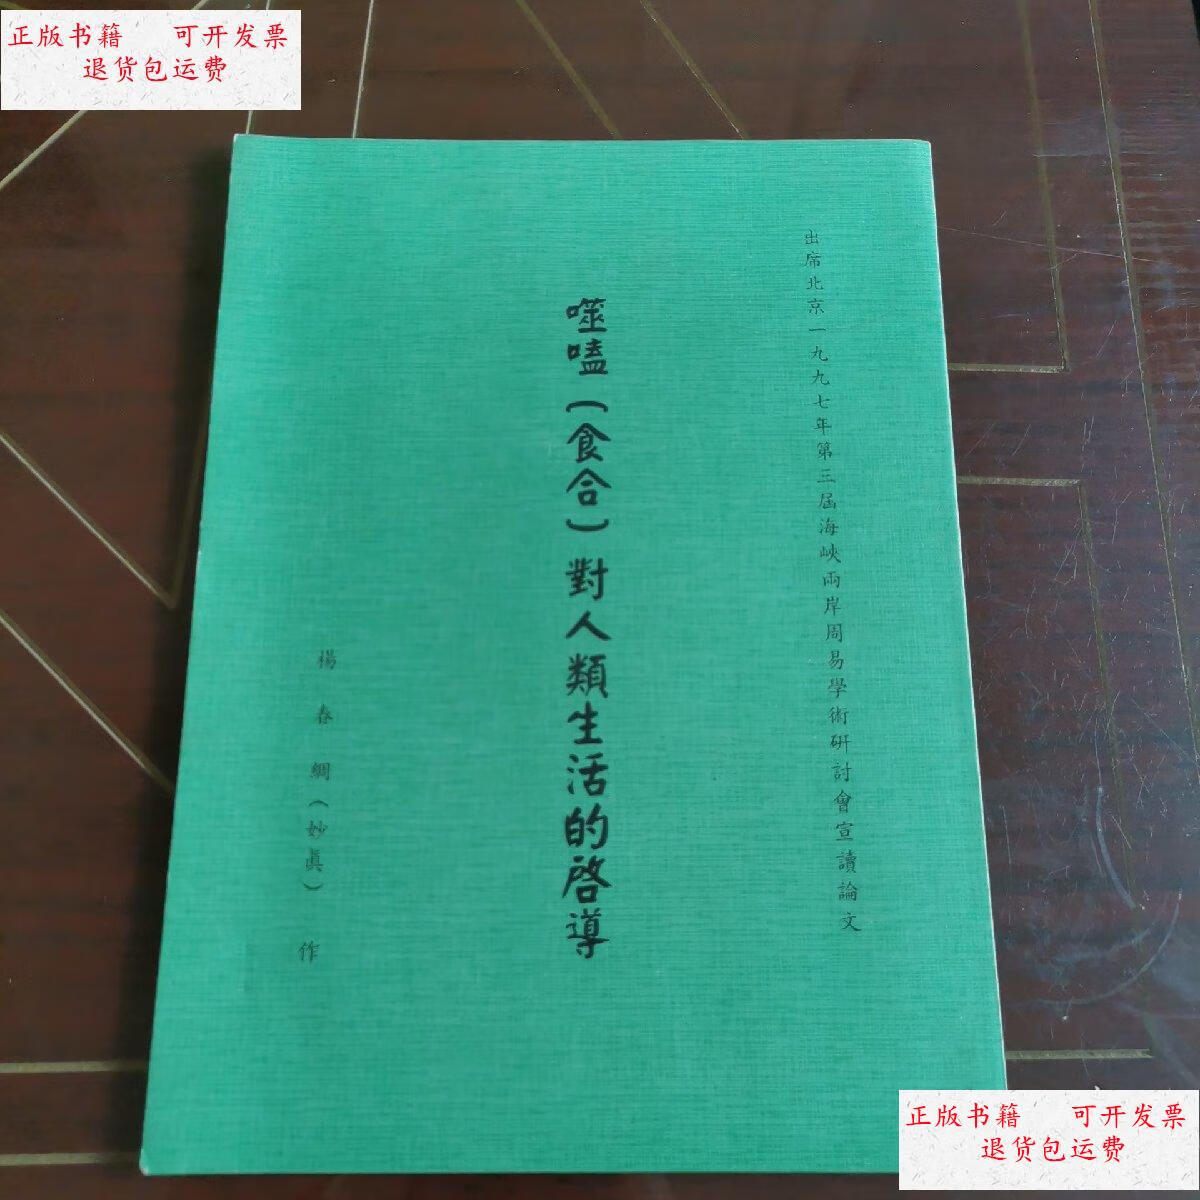 正版书籍 可开发票
退货包运费
出席北京一九九七年第三屆海峽兩岸周易學術研討會宣讀論文
噬嗑（食合）對人類生活的啓導
楊春綢（妙眞）作
正版书籍 可开发票
退货包运费